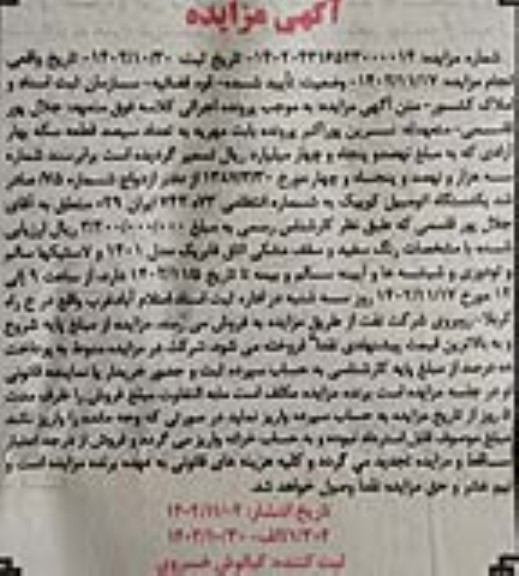 آگهی مزایده
شماره مزایده: ۱۴۰۲۰۲۳۱۶۵۲۳۰۰۰۰۱۴- تاریخ ثبت: ۱۴۰۲/۱۰/۳۰- تاریخ واقعی
انجام مزایده: ۱۴۰۲/۱۱/۱۷- وضعیت: تأیید شده- قوه قضائیه- سازمان ثبت اسناد و
املاک کشور- متن آگهی مزایده: به موجب پرونده اجرائی کلاسه فوق متعهد: جلال پور
قاسمی- متعهدله: نسرین پوراکبر پرونده بابت مهریه به تعداد سیصد قطعه سکه بهار
آزادی که به مبلغ نهصدو پنجاه و چهار میلیارد ریال تسعیر گردیده است برابر سند شماره
سه هزار و نهصد و پنجاه و چهار مورخ ۱۳۸۷/۳/۳۰ از دفتر ازدواج شماره ۷۵ صادر
شد یکدستگاه اتومبیل کوییک به شماره انتظامی ایران ۲۹- متعلق به آقای
جلال پور قاسمی که طبق نظر کارشناس رسمی به مبلغ ۳/۲۰۰/۰۰۰/۰۰۰ ریال ارزیابی
شده با مشخصات رنگ سفید و سقف مشکی اتاق فابریک مدل ۱۴۰۱ و لاستیکها سالم
و تودوزی و شیشه ها و آیینه سالم و بیمه تا تاریخ دارد، از ساعت ۹ الی
۱۲ مورخ ۱۴۰۲/۱۱/۱۷ روز سه شنبه در اداره ثبت اسناد اسلام آبادغرب واقع در خ راه
کربلا- روبروی شرکت نفت از طریق مزایده به فروش می رسد. مزایده از مبلغ پایه شروع
و به بالاترین قیمت پیشنهادی نقدا" فروخته می شود. شرکت در مزایده منوط به پرداخت
ده درصد از مبلغ پایه کارشناسی به حساب سپرده ثبت و حضور خریدار یا نماینده قانونی
او در جلسه مزایده است برنده مزایده مکلف است مابه التفاوت مبلغ فروش را ظرف مدت
۵ روز از تاریخ مزایده به حساب سپرده واریز نماید در صورتی که وجه مانده را واریز نکند
مبلغ موصوف قابل استرداد نبوده و به حساب خزانه واریز می گردد و فروش از درجه اعتبار
ساقط و مزایده تجدید می گردد و کلیه هزینه های قانونی به عهده برنده مزایده است و
نیم عشر و حق مزایده نقدا وصول خواهد شد.
تاریخ انتشار: ۱۴۰۲/۱۱/۰۲
الف- ۱۴۰۲/۱۰/۳۰
ثبت کننده: کیانوش خسروی